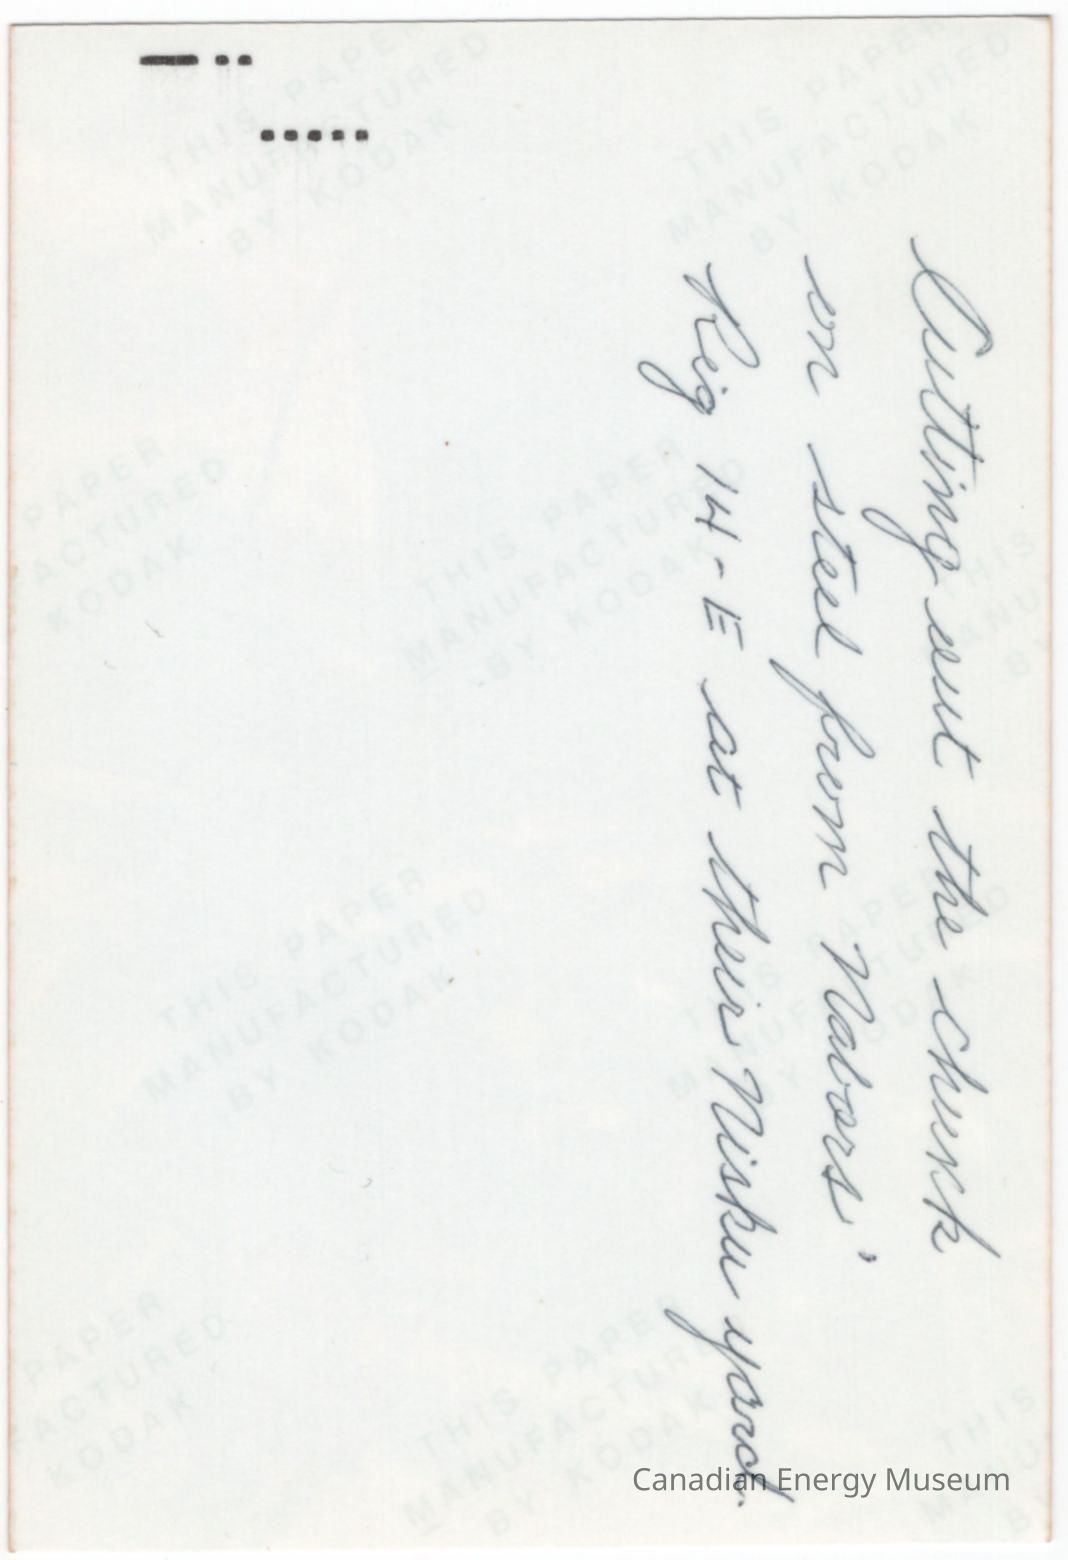 Cutting out the chunk
on steel from Nabors'
Rig 14-E at their Nisku yard.
THIS PAPER
MANUFACTURED
BY KODAK
THIS PAPER
MANUFACTURED
BY KODAK
PAPER
FACTURED
KODAK
THIS PAPER
MANUFACTURED
BY KODAK
THIS
ANU
BY
THIS PAPER
MANUFACTURED
BY KODAK
THIS PAPER
MANUFACTURED
BY KODAK
PAPER
FACTURED
KODAK
THIS PAPER
MANUFACTURED
BY KODAK
Canadian Energy Museum